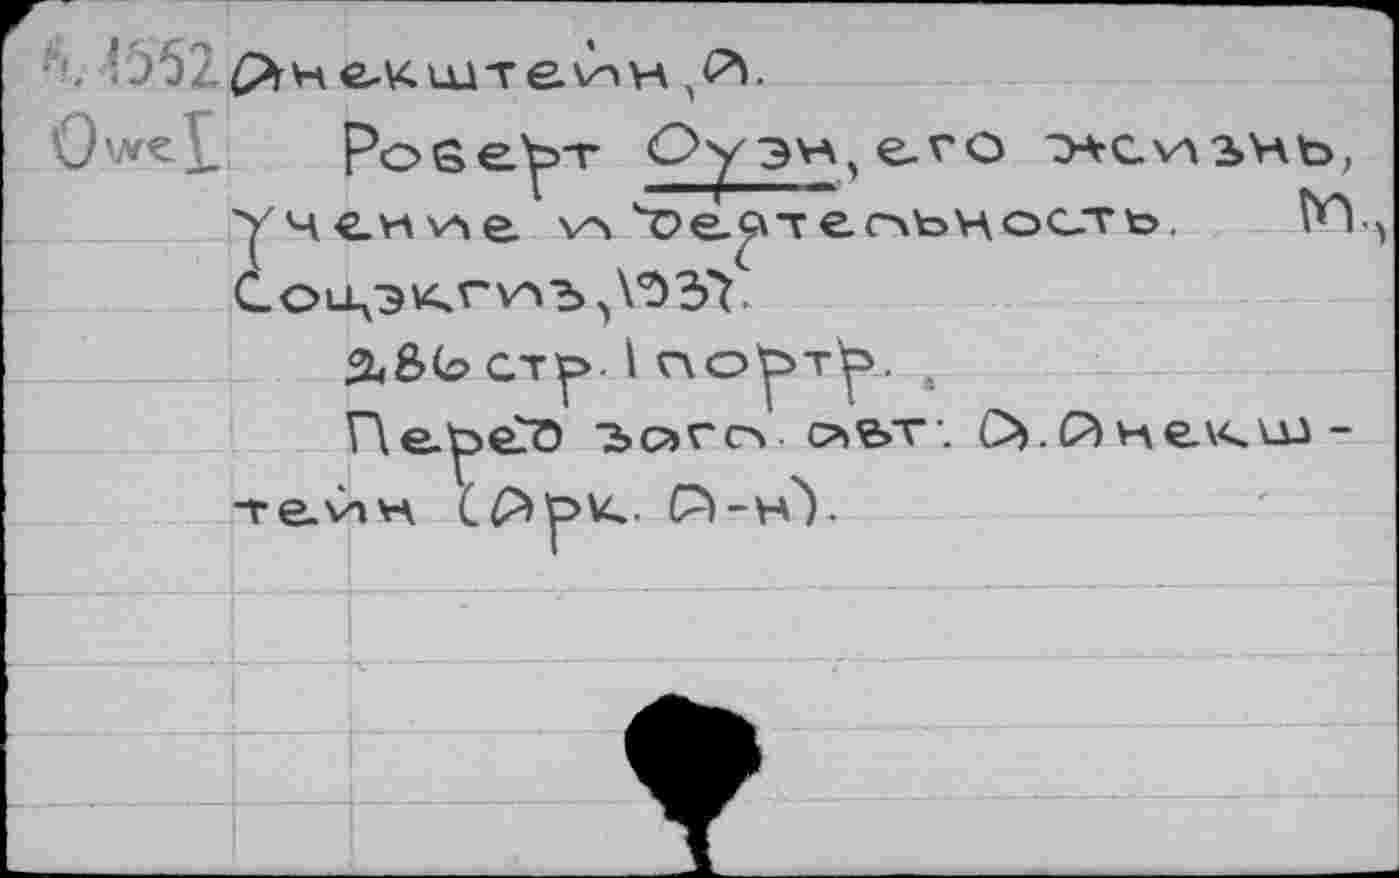 А. 1552 Анекштейн, А.
Owe I Роберт Оуэн, его жизнь,
учение и деятельность. М.,
Соцэкгиз, 1937.
286 стр. 1 портр.
Перед загл. авт: А. Анекш-
тейн (Арк. А-н).